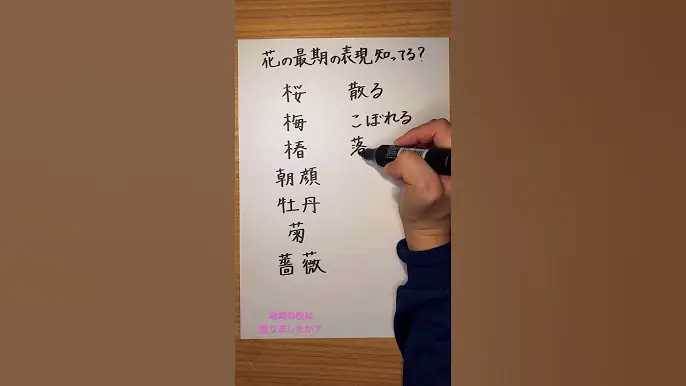 花の最期の表現知ってる?
桜 散る
梅 こぼれる
椿 落
朝顔
牡丹
菊
薔薇